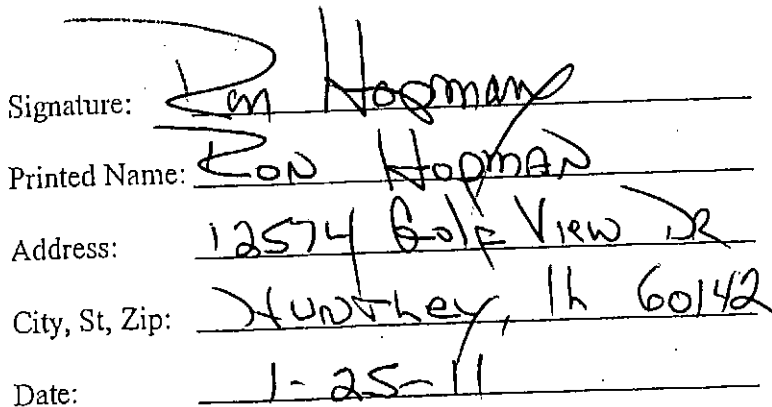 Signature: Ron Hopman
Printed Name: Ron HopmAN
Address: 12574 Golf View DR
City, St, Zip: Huntley, IL 60142
Date: 1-25-11